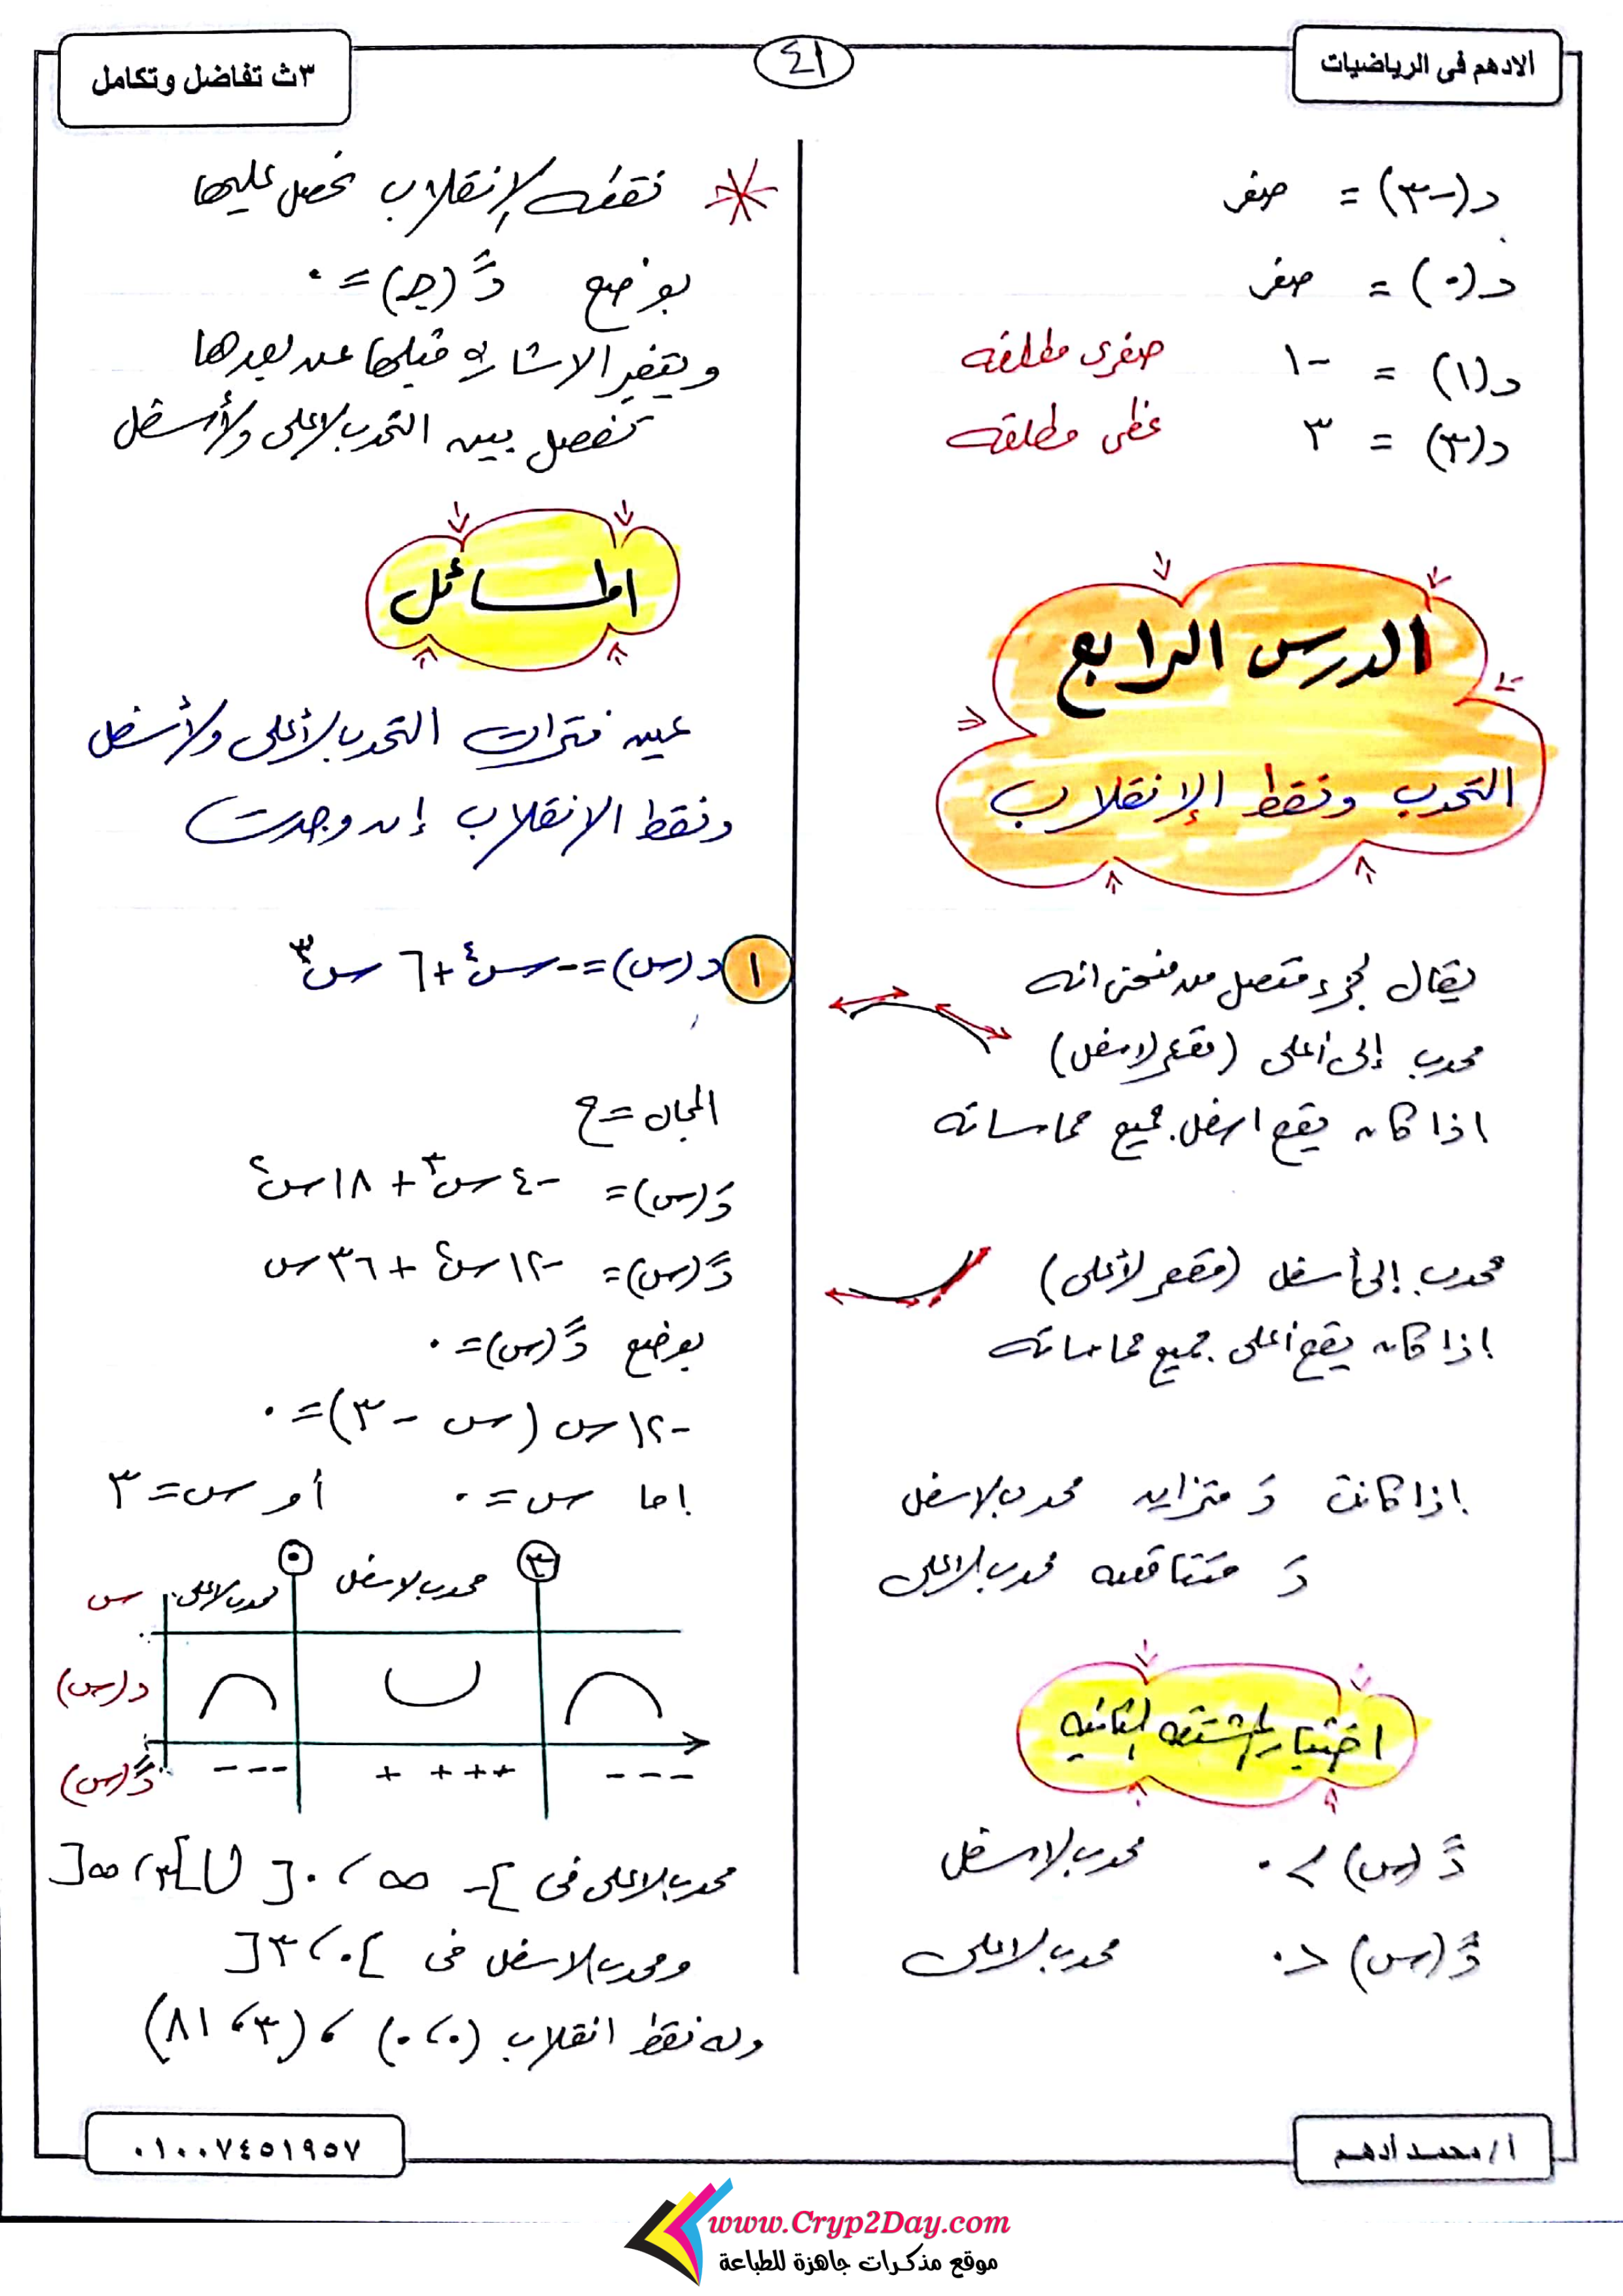 الادهم فى الرياضيات
٤١
٣ث تفاضل وتكامل
د(-٣) = صفر
د(٠) = صفر
د(١) = -١ صغرى مطلقه
د(٣) = ٣ عظمى مطلقه
الدرس الرابع
التحدب ونقط الإنقلاب
يقال لجزء متصل من منحنى انه
محدب إلى أعلى (مقعر لاسفل)
اذا كان يقع اسفل جميع مماساته
محدب إلى أسفل (مقعر لأعلى)
اذا كان يقع أعلى جميع مماساته
اذا كانت دَ متزايد محدب لاسفل
دَ متناقصه محدب لاعلى
اختبار المشتقه الثانيه
دً (س) > ٠ محدب لاسفل
دً (س) < ٠ محدب لاعلى
نقطه الإنقلاب نحصل عليها
بوضع دً (جـ) = ٠
وتتغير الاشاره قبلها عن بعدها
تفصل بين التحدب لاعلى ولأسفل
المسائل
عين فترات التحدب لأعلى ولأسفل
ونقط الانقلاب إن وجدت
١ د(س) = -س٤ + ٦ س٣
المجال = ح
دَ(س) = -٤ س٣ + ١٨ س٢
دً(س) = -١٢ س٢ + ٣٦ س
بوضع دً(س) = ٠
-١٢ س (س - ٣) = ٠
اما س = ٠ أو س = ٣
٠ ٣
س محدب لاعلى محدب لاسفل
د(س)
دً(س) - - - + + + + - - -
محدب لاعلى فى ]-∞ ، ٠[ U ]٣ ، ∞[
ومحدب لاسفل فى ]٠ ، ٣[
وله نقط انقلاب (٠،٠) ، (٣، ٨١)
أ/محمد أدهم
٠١٠٠٧٤٥١٩٥٧
www.Cryp2Day.com
موقع مذكرات جاهزة للطباعة